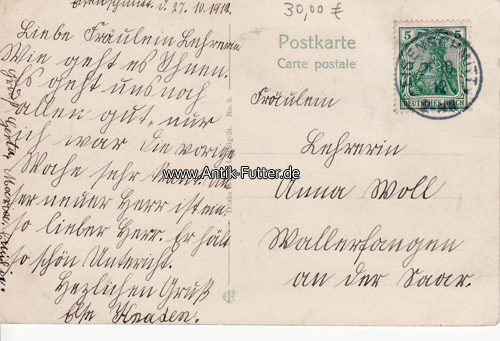 Eisenschmitt d. 27.10.1910.
Liebe Fräulein Lehrerin
Wie geht es Ihnen.
Es geht uns noch
allen gut, nur
ich war die vorige
Wohe sehr krank.
ser neuer Herr ist ein
so lieber Herr. Er hält
so schön Unterricht.
Hezlichen Gruß
Else
Gruß
30,00 €
Postkarte
Carte postale
5 5
DEUTSCHES REICH
Fräulein
Lehrerin
Anna Woll
Wallerfangen
an der Saar.
www.Antik-Futter.de
No. 6.